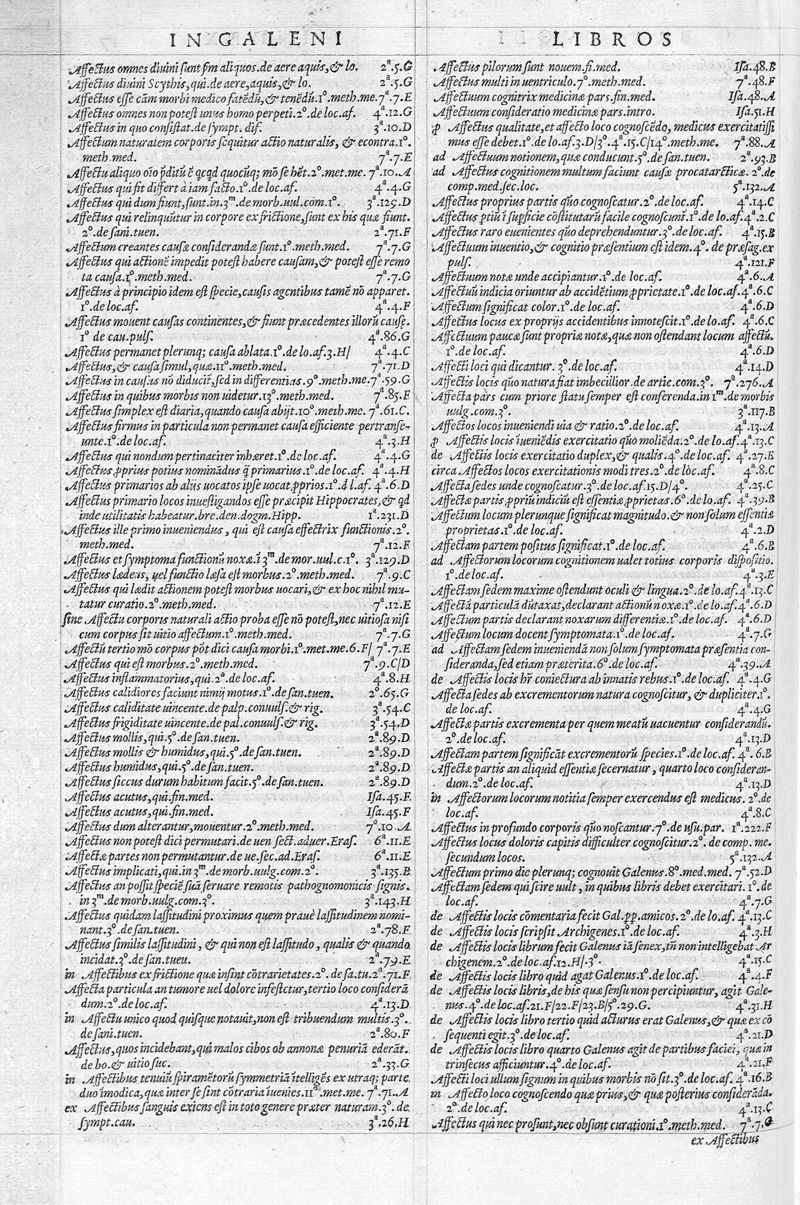 IN GALENI
Affectus omnes diuini sunt ꝑm aliquos.de aere aquis,& lo. 2ª.5.G
Affectus diuini Scythis,qui.de aere,aquis,& lo. 2ª.5.G
Affectus esse cām morbi medico fatēdū,& tenēdū.1º.meth.me.7ª.7.E
Affectus omnes non potest unus homo perpeti.2º.de loc.af. 4ª.12.G
Affectus in quo consistat.de sympt. dif. 3ª.10.D
Affectum naturalem corporis sequitur actio naturalis, & econtra.1º.
meth.med. 7ª.7.E
Affectu aliquo oīo ꝑditū ē qcqd quocūq; mō se hēt.2º.met.me. 7ª.10.A
Affectus qui fit differt à iam facto.1º.de loc.af. 4ª.4.G
Affectus qui dum fiunt,sunt.in.3ᵐ.de morb.uul.com.1º. 3ª.129.D
Affectus qui relinquūtur in corpore ex frictione,sunt ex his quæ fiunt.
2º.de sani.tuen. 2ª.71.F
Affectum creantes causæ considerandæ sunt.1º.meth.med. 7ª.7.G
Affectus qui actionē impedit potest habere causam,& potest esse remo
ta causa.1º.meth.med. 7ª.7.G
Affectus à principio idem est specie,causis agentibus tamē nō apparet.
1º.de loc.af. 4ª.4.F
Affectus mouent causas continentes,& fiunt præcedentes illorū causæ.
1º de cau.puls. 4ª.86.G
Affectus permanet plerunq; causa ablata.1º.de loc.af.3.H/ 4ª.4.C
Affectus,& causa simul,quæ.11º.meth.med. 7ª.71.D
Affectus in causas nō diducit,sed in differentias.9º.meth.me.7ª.59.G
Affectus in quibus morbis non uidetur.13º.meth.med. 7ª.85.F
Affectus simplex est diaria,quando causa abijt.10º.meth.me. 7ª.61.C.
Affectus firmus in particula non permanet causa efficiente pertranse-
unte.1º.de loc.af. 4ª.3.H
Affectus qui nondum pertinaciter inhæret.1º.de loc.af. 4ª.4.G
Affectus ꝓprius potius nominādus q̄ primarius.1º.de loc.af. 4ª.4.H
Affectus primarios ab alijs uocatos ipse uocat ꝓprios.1º.d l.af. 4ª.6.D
Affectus primario locos inuestigandos esse præcipit Hippocrates,& qd
inde utilitatis habeatur.bre.den.dogm.Hipp. 1ª.231.D
Affectus ille primo inueniendus, qui est causa effectrix functionis.2º.
meth.med. 7ª.12.F
Affectus et symptoma functionū noxæ.ī 3ᵐ.de mor.uul.c.1º. 3ª.129.D
Affectus lædens, uel functio læsa est morbus.2º.meth.med. 7ª.9.C
Affectus qui lædit actionem potest morbus uocari,& ex hoc nihil mu-
tatur curatio.2º.meth.med. 7ª.12.E
sine Affectu corporis naturali actio proba esse nō potest,nec uitiosa nisi
cum corpus sit uitio affectum.1º.meth.med. 7ª.7.G
Affectū tertio mō corpus pōt dici causa morbi.1º.met.me.6.F/ 7ª.7.E
Affectus qui est morbus.2º.meth.med. 7ª.9.C/D
Affectus inflammatorius,qui.2º.de loc.af. 4ª.8.H
Affectus calidiores faciunt nimij motus.1º.de san.tuen. 2ª.65.G
Affectus caliditate uincente.de palp.conuuls.& rig. 3ª.54.C
Affectus frigiditate uincente.de pal.conuuls.& rig. 3ª.54.D
Affectus mollis,qui.5º.de san.tuen. 2ª.89.D
Affectus mollis & humidus,qui.5º.de san.tuen. 2ª.89.D
Affectus humidus,qui.5º.de san.tuen. 2ª.89.D
Affectus siccus durum habitum facit.5º.de san.tuen. 2ª.89.D
Affectus acutus,qui.fin.med. Isa.45.F.
Affectus acutus,qui.fin.med. Isa.45.F.
Affectus dum alterantur,mouentur.2º.meth.med. 7ª.10.A
Affectus non potest dici permutari.de uen sect.aduer.Eras. 6ª.11.E
Affectæ partes non permutantur.de ue.sec.ad.Eras. 6ª.11.E
Affectus implicati,qui.in 3ᵐ.de morb.uulg.com.2º. 3ª.135.B
Affectus an possit speciē suā seruare remotis pathognomonicis signis.
in 3ᵐ.de morb.uulg.com.3º. 3ª.143.H
Affectus quidam lassitudini proximus quem prauè lassitudinem nomi-
nant.3º.de san.tuen. 2ª.78.F
Affectus similis lassitudini, & qui non est lassitudo, qualis & quando
incidat.3º.de san.tueu. 2ª.79.E
in Affectibus ex frictione quæ insint cōtrarietates.2º.de sa.tu.2ª.71.F.
Affecta particula an tumore uel dolore infestetur,tertio loco considerā
dum.2º.de loc.af. 4ª.13.D
in Affectu unico quod quisque notauit,non est tribuendum multis.3º.
de sani.tuen. 2ª.80.F
Affectus,quos incidebant,qui malos cibos ob annonæ penuriā ederāt.
de bo.& uitio suc. 2ª.33.G
in Affectibus tenuiū spirametorū symmetriā ītelligēs ex utraq; parte
duo īmodica,quæ inter se sint cōtraria īuenies.11ª.met.me. 7ª.71.A
ex Affectibus sanguis exiens est in toto genere præter naturam.3º.de
sympt.cau. 3ª.26.H
LIBROS
Affectus pilorum sunt nouem.fi.med. Isa.48.B
Affectus multi in uentriculo.7º.meth.med. 7ª.48.F
Affectuum cognitrix medicinæ pars.fin.med. Isa.48.A
Affectuum consideratio medicinæ pars.intro. Isa.51.H
ꝓ Affectus qualitate,et affecto loco cognoscēdo,medicus exercitatissi
mus esse debet.1º.de lo.af.3.D/3º.4ª.15.C/14º.meth.me. 7ª.88.A
ad Affectuum notionem,quæ conducunt.5º.de san.tuen. 2ª.93.B
ad Affectus cognitionem multum faciunt causæ procatarcticæ. 2º.de
comp.med.sec.loc. 5ª.132.A
Affectus proprius partis quo cognoscatur.2º.de loc.af. 4ª.14.C
Affectus ptiū ī supficie cōstitutarū facile cognoscunt̄.1º.de lo.af.4ª.2.C
Affectus raro euenientes quo deprehenduntur.3º.de loc.af. 4ª.15.B
Affectuum inuentio,& cognitio præsentium est idem.4º. de præsag.ex
puls. 4ª.121.F
Affectuum notæ unde accipiantur.1º.de loc.af. 4ª.6.A
Affectuū indicia oriuntur ab accidētium ꝓprietate.1º.de loc.af.4ª.6.C
Affectum significat color.1º.de loc.af. 4ª.6.D
Affectus locus ex proprijs accidentibus innotescit.1º.de lo.af. 4ª.6.C
Affectuum paucæ sunt propriæ notæ,quæ non ostendant locum affectū.
1º.de loc.af. 4ª.6.D
Affecti loci qui dicantur. 3º.de loc.af. 4ª.14.D
Affectis locis quo natura fiat imbecillior.de artic.com.3º. 7ª.276.A
Affecta pars cum priore statu semper est conferenda.in 1ᵐ.de morbis
uulg.com.3º. 3ª.117.B
Affectos locos inueniendi uia & ratio.2º.de loc.af. 4ª.13.A
ꝓ Affectis locis īueniēdis exercitatio quo moliēda.2º.de lo.af.4ª.13.C
de Affectis locis exercitatio duplex,& qualis.4º.de loc.af. 4ª.27.E
circa Affectos locos exercitationis modi tres.2º.de loc.af. 4ª.8.C
Affecta sedes unde cognoscatur.3º.de loc.af.15.D/4º. 4ª.25.C
Affectæ partis ꝓpriū indiciū est essentiæ ꝓprietas.6º.de lo.af. 4ª.39.B
Affectum locum plerunque significat magnitudo.& non solum essentiæ
proprietas.1º.de loc.af. 4ª.2.D
Affectam partem positus significat.1º.de loc.af. 4ª.6.B
ad Affectorum locorum cognitionem ualet totius corporis dispositio.
1º.de loc.af. 4ª.3.E
Affectam sedem maxime ostendunt oculi & lingua.2º.de lo.af.4ª.13.C
Affectā particulā dūtaxat,declarant actionū noxæ.1º.de lo.af.4ª.6.D
Affectum partem declarant noxarum differentiæ.1º.de loc.af. 4ª.6.D
Affectum locum docent symptomata.1º.de loc.af. 4ª.7.G
ad Affectam sedem inueniendā non solum symptomata præsentia con-
sideranda,sed etiam præterita.6º.de loc.af. 4ª.39.A
de Affectis locis hr̄ coniectura ab innatis rebus.1º.de loc.af. 4ª.4.G
Affecta sedes ab excrementorum natura cognoscitur, & dupliciter.1º.
de loc.af. 4ª.4.G
Affectæ partis excrementa per quem meatū uacuentur considerandū.
2º.de loc.af. 4ª.13.D
Affectam partem significāt excrementorū species.1º.de loc.af. 4ª.6.B
Affectæ partis an aliquid essentiæ secernatur, quarto loco consideran-
dum.2º.de loc.af. 4ª.13.D
in Affectorum locorum notitia semper exercendus est medicus. 2º.de
loc.af. 4ª.8.C
Affectus in profundo corporis quo noscantur.7º.de usu.par. 1ª.222.F
Affectus locus doloris capitis difficulter cognoscitur.2º. de comp. me.
secundum locos. 5ª.132.A
Affectum primo die plerunq; cognouit Galenus.8º.med.med. 7ª.52.D
Affectam sedem qui scire uult, in quibus libris debet exercitari. 1º.de
loc.af. 4ª.7.G
de Affectis locis cōmentaria fecit Gal.ꝓp.amicos.2º.de lo.af. 4ª.13.C
de Affectis locis scripsit Archigenes.1º.de loc.af. 4ª.3.H
de Affectis locis librum fecit Galenus iā senex,tn̄ non intelligebat Ar
chigenem.2º.de loc.af.12.H/.3º. 4ª.15.C
de Affectis locis libro quid agat Galenus.1º.de loc.af. 4ª.4.F
de Affectis locis libris,de his quæ sensu non percipiuntur, agit Gale-
nus.4º.de loc.af.21.F/22.F/23.B/5º.29.G. 4ª.31.H
de Affectis locis libro tertio quid acturus erat Galenus,& quæ ex cō
sequenti egit.3º.de loc.af. 4ª.21.D
de Affectis locis libro quarto Galenus agit de partibus faciei, quæ in
trinsecus afficiuntur.4º.de loc.af. 4ª.21.F
Affecti loci ullum signum in quibus morbis nō sit.3º.de loc.af. 4ª.16.B
in Affecto loco cognoscendo quæ prius,& quæ posterius considerāda.
2º.de loc.af. 4ª.13.C
Affectus qui nec prosunt,nec obsunt curationi.1º.meth.med. 7ª.7.G
ex Affectibus